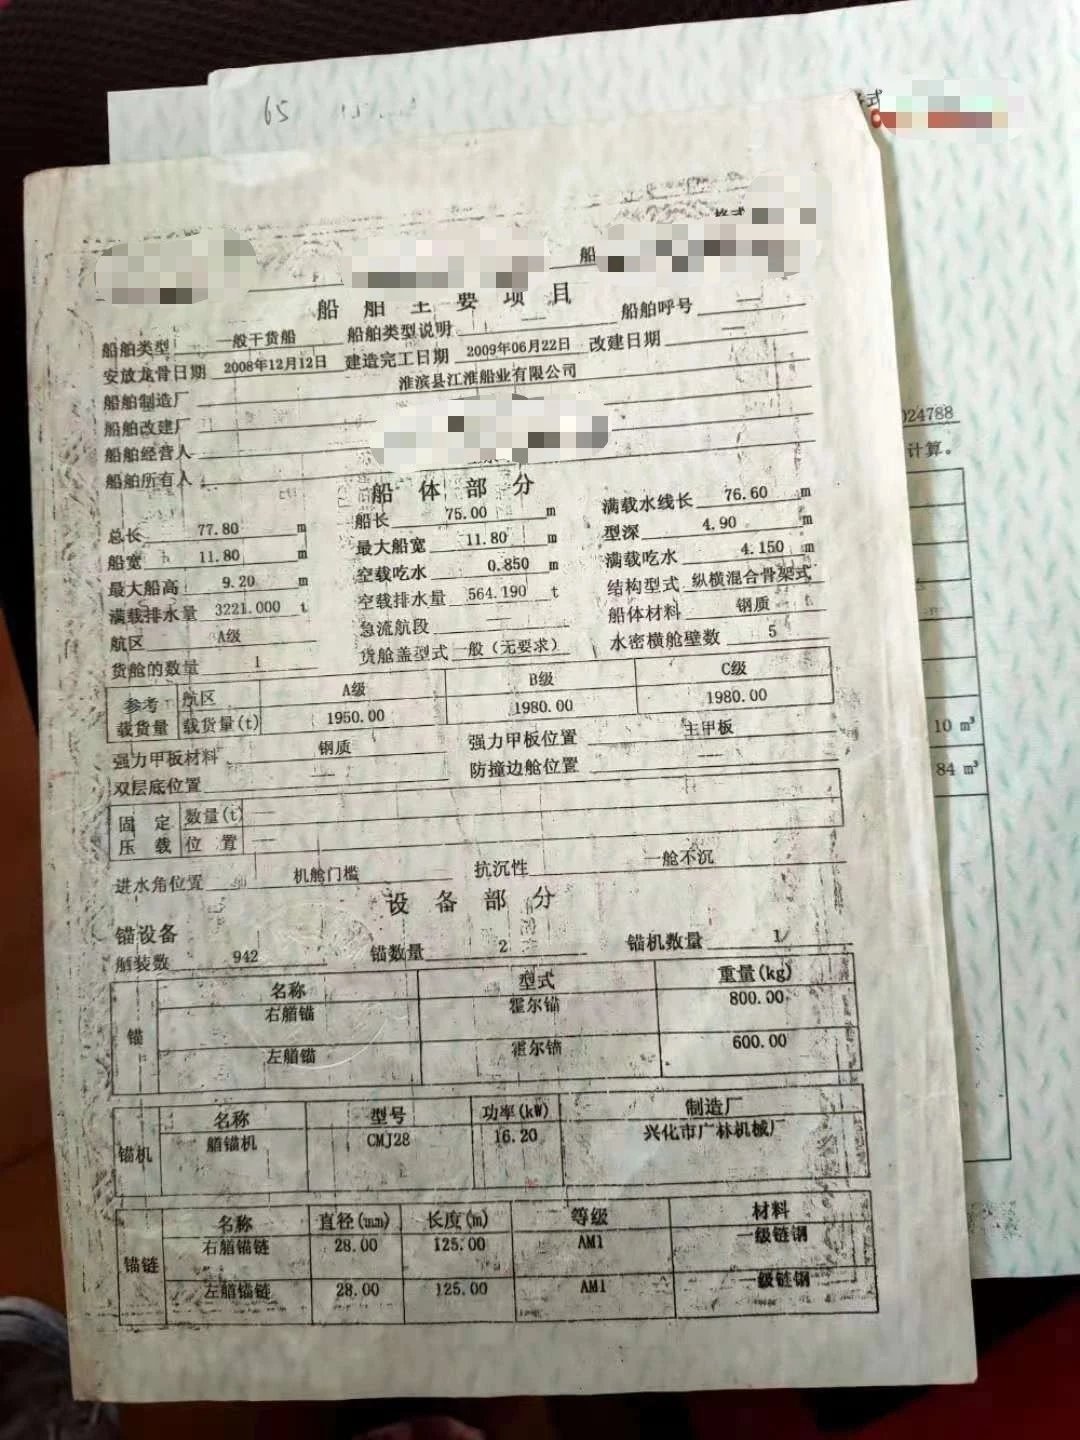 65
格式
船
船舶主要项目
船舶类型 一般干货船 船舶类型说明 — 船舶呼号 —
安放龙骨日期 2008年12月12日 建造完工日期 2009年06月22日 改建日期 —
船舶制造厂 淮滨县江淮船业有限公司
船舶改建厂
船舶经营人
船舶所有人
船体部分
总长 77.80 m 船长 75.00 m 满载水线长 76.60 m
船宽 11.80 m 最大船宽 11.80 m 型深 4.90 m
最大船高 9.20 m 空载吃水 0.850 m 满载吃水 4.150 m
满载排水量 3221.000 t 空载排水量 564.190 t 结构型式 纵横混合骨架式
航区 A级 急流航段 — 船体材料 钢质
货舱的数量 1 货舱盖型式 一般(无要求) 水密横舱壁数 5
参考载货量 航区 A级 B级 C级
载货量(t) 1950.00 1980.00 1980.00
强力甲板材料 钢质 强力甲板位置 主甲板
双层底位置 — 防撞边舱位置 —
固定压载 数量(t) —
位置 —
进水角位置 机舱门槛 抗沉性 一舱不沉
设备部分
锚设备
舾装数 942 锚数量 2 锚机数量 1
锚 名称 型式 重量(kg)
右艏锚 霍尔锚 800.00
左艏锚 霍尔锚 600.00
锚机 名称 型号 功率(kW) 制造厂
艏锚机 CMJ28 16.20 兴化市广林机械厂
锚链 名称 直径(mm) 长度(m) 等级 材料
右艏锚链 28.00 125.00 AM1 一级链钢
左艏锚链 28.00 125.00 AM1 一级链钢
式
024788
计算。
10 m³
84 m³